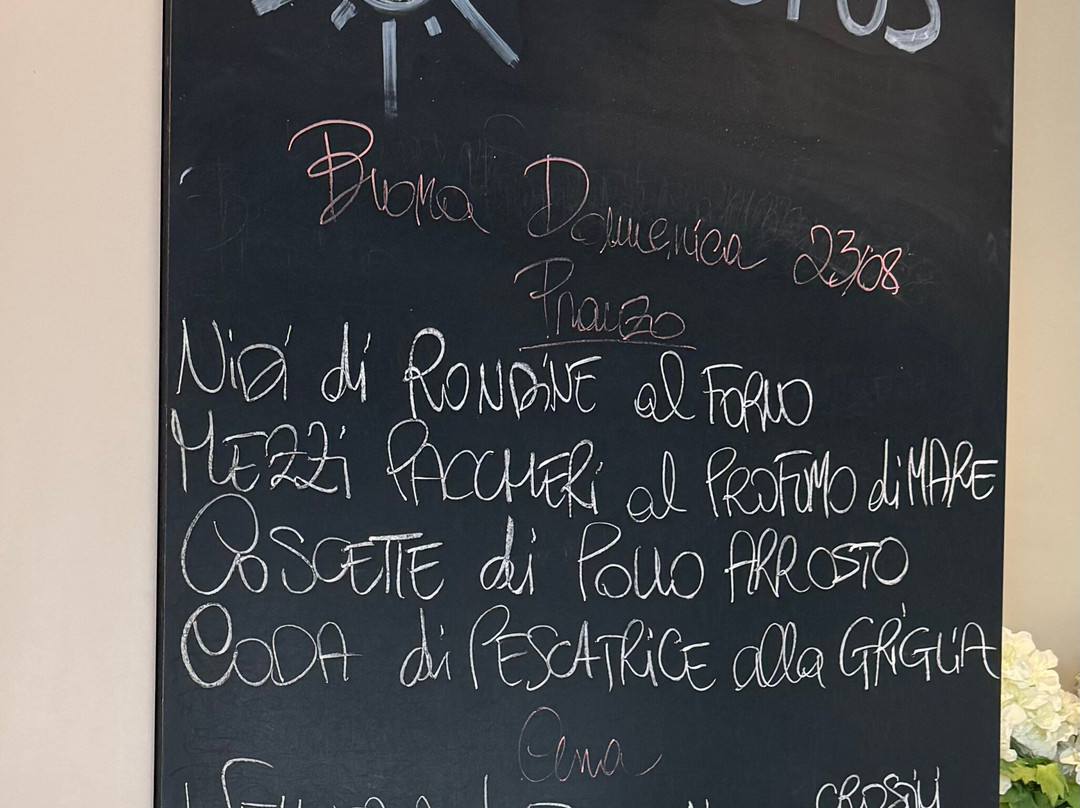 Buona Domenica 23/08
Pranzo
Nidi di RONDINE al FORNO
MEZZi PACCHERi al PROFUMO di MARE
COSCETTE di Pollo ARROSTO
CODA di PESCATRiCE alla GRiGLiA
Cena